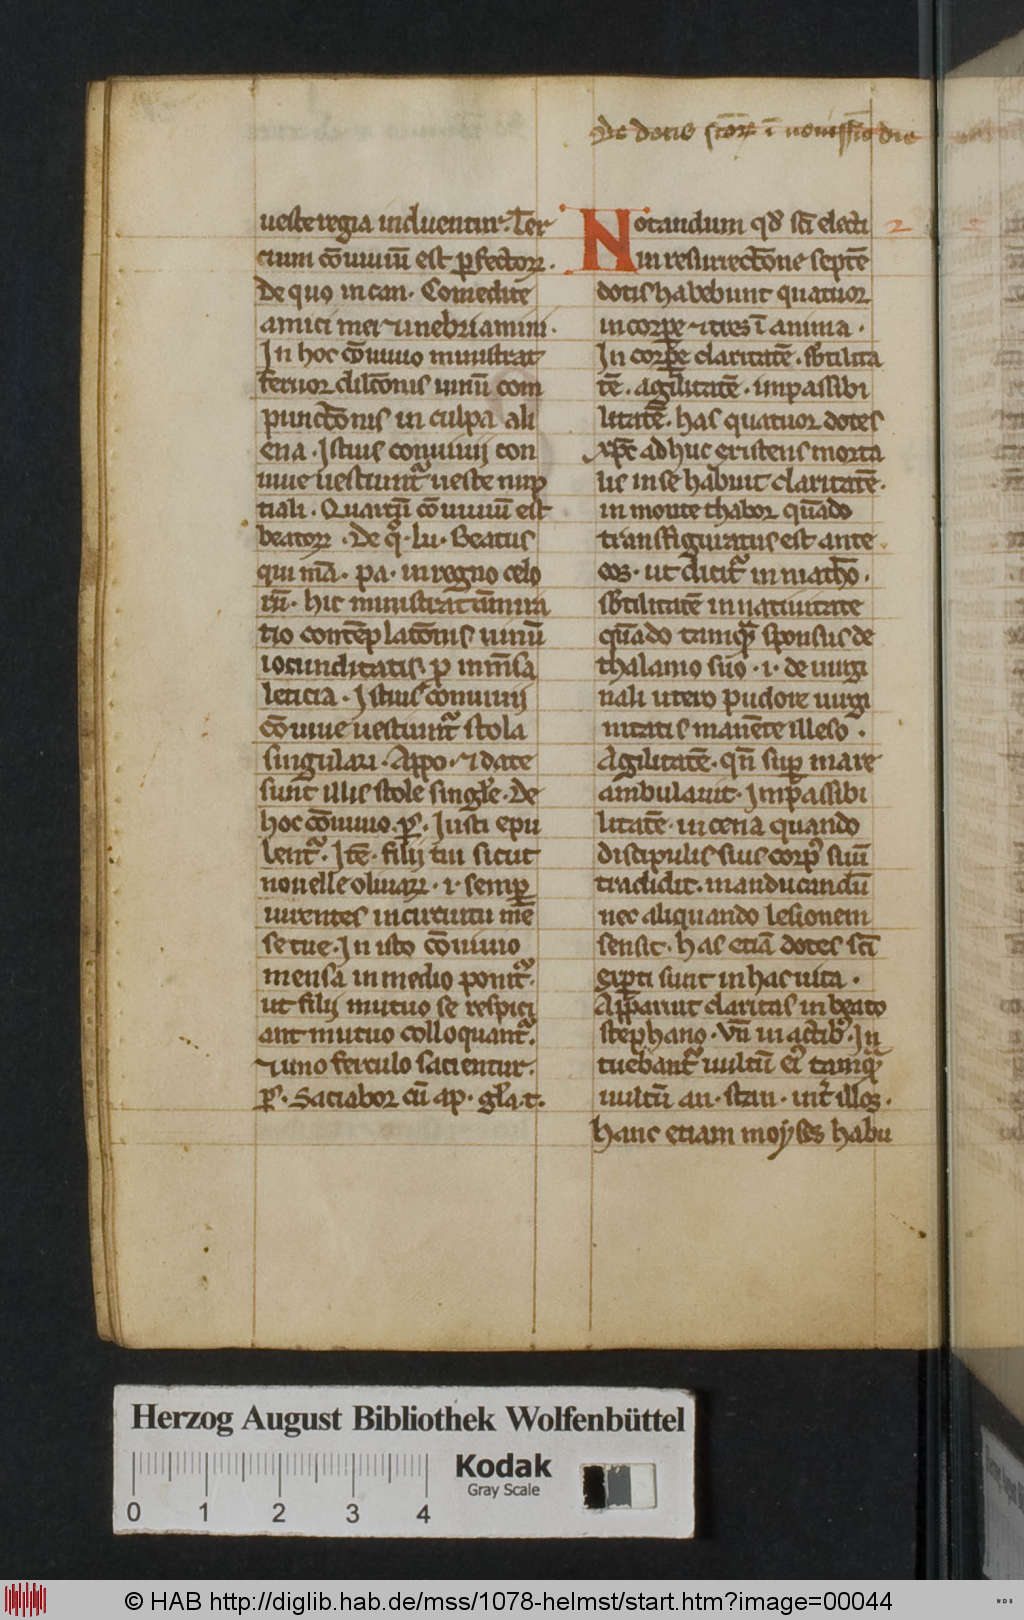 De dotib' sctōꝝ ī nouissīo die
ueste regia induentur. Ter
cium cōuiuiū est ꝑfectoꝝ.
De quo in can. Comedite
amici mei ⁊ inebriamini.
In hoc cōuiuio ministrat
feruor dilcōnis uinū com
punctōnis in culpa ali
ena. Istius conuiuij con
uiue uestiunt᷑ ueste nup
tiali. Quartū cōuiuiū est
beatoꝝ. De qͦ. lu. Beatus
qui mā. pa. in regno celo
rū. hic ministrat ammira
tio contēplatōnis uinū
iocunditatis. ꝑ inmēsa
leticia. Istius conuiuij
cōuiue uestiunt᷑ stola
singulari. Appo. ⁊ date
sunt illis stole singl'e. De
hoc cōuiuio. pͤ. Iusti epu
lent᷑. Itē. filij tui sicut
nouelle oliuaꝝ. i. semꝑ
uirentes in circuitu mē
se tue. In isto cōuiuio
mensa in medio ponit᷑.
ut filij mutuo se respici
ant mutuo colloquant᷑.
⁊ uno ferculo sacientur.
pͤ. Saciabor cū ap. gl'a. t.
Notandum qd' sc̄i electi
in resurrectōne septē
dotis habebunt quatuor
in corpore ⁊ tres ī anima.
In corpore claritatē. sb'tilita
tē. agilitatē. impassibi
litatē. has quatuor dotes
xp̄c adhuc existens morta
lis in se habuit claritatē.
in monte thabor quādo
transfiguratus est ante
eos. ut dicit᷑ in matho.
sb'tilitatē in natiuitate
quādo tamquā sponsus de
thalamo suo. i. de uirgi
nali utero pudore uirgi
nitatis manēte illeso.
Agilitatē. qn̄ suꝑ mare
ambulauit. Impassibi
litatē. in cena quando
discipulis suis corpꝰ suū
tradidit. manducandū
nec aliquando lesionem
sensit. has etiā dotes sc̄i
exꝑti sunt in hac uita.
Apparuit claritas in beato
stephano. Vn̄ in actibꝰ. In
tuebant᷑ uultū eiꝰ tamqͣ
uultū an. stan. int' illos.
hanc etiam moyses habu
2
Herzog August Bibliothek Wolfenbüttel
Kodak
Gray Scale
0 1 2 3 4
© HAB http://diglib.hab.de/mss/1078-helmst/start.htm?image=00044